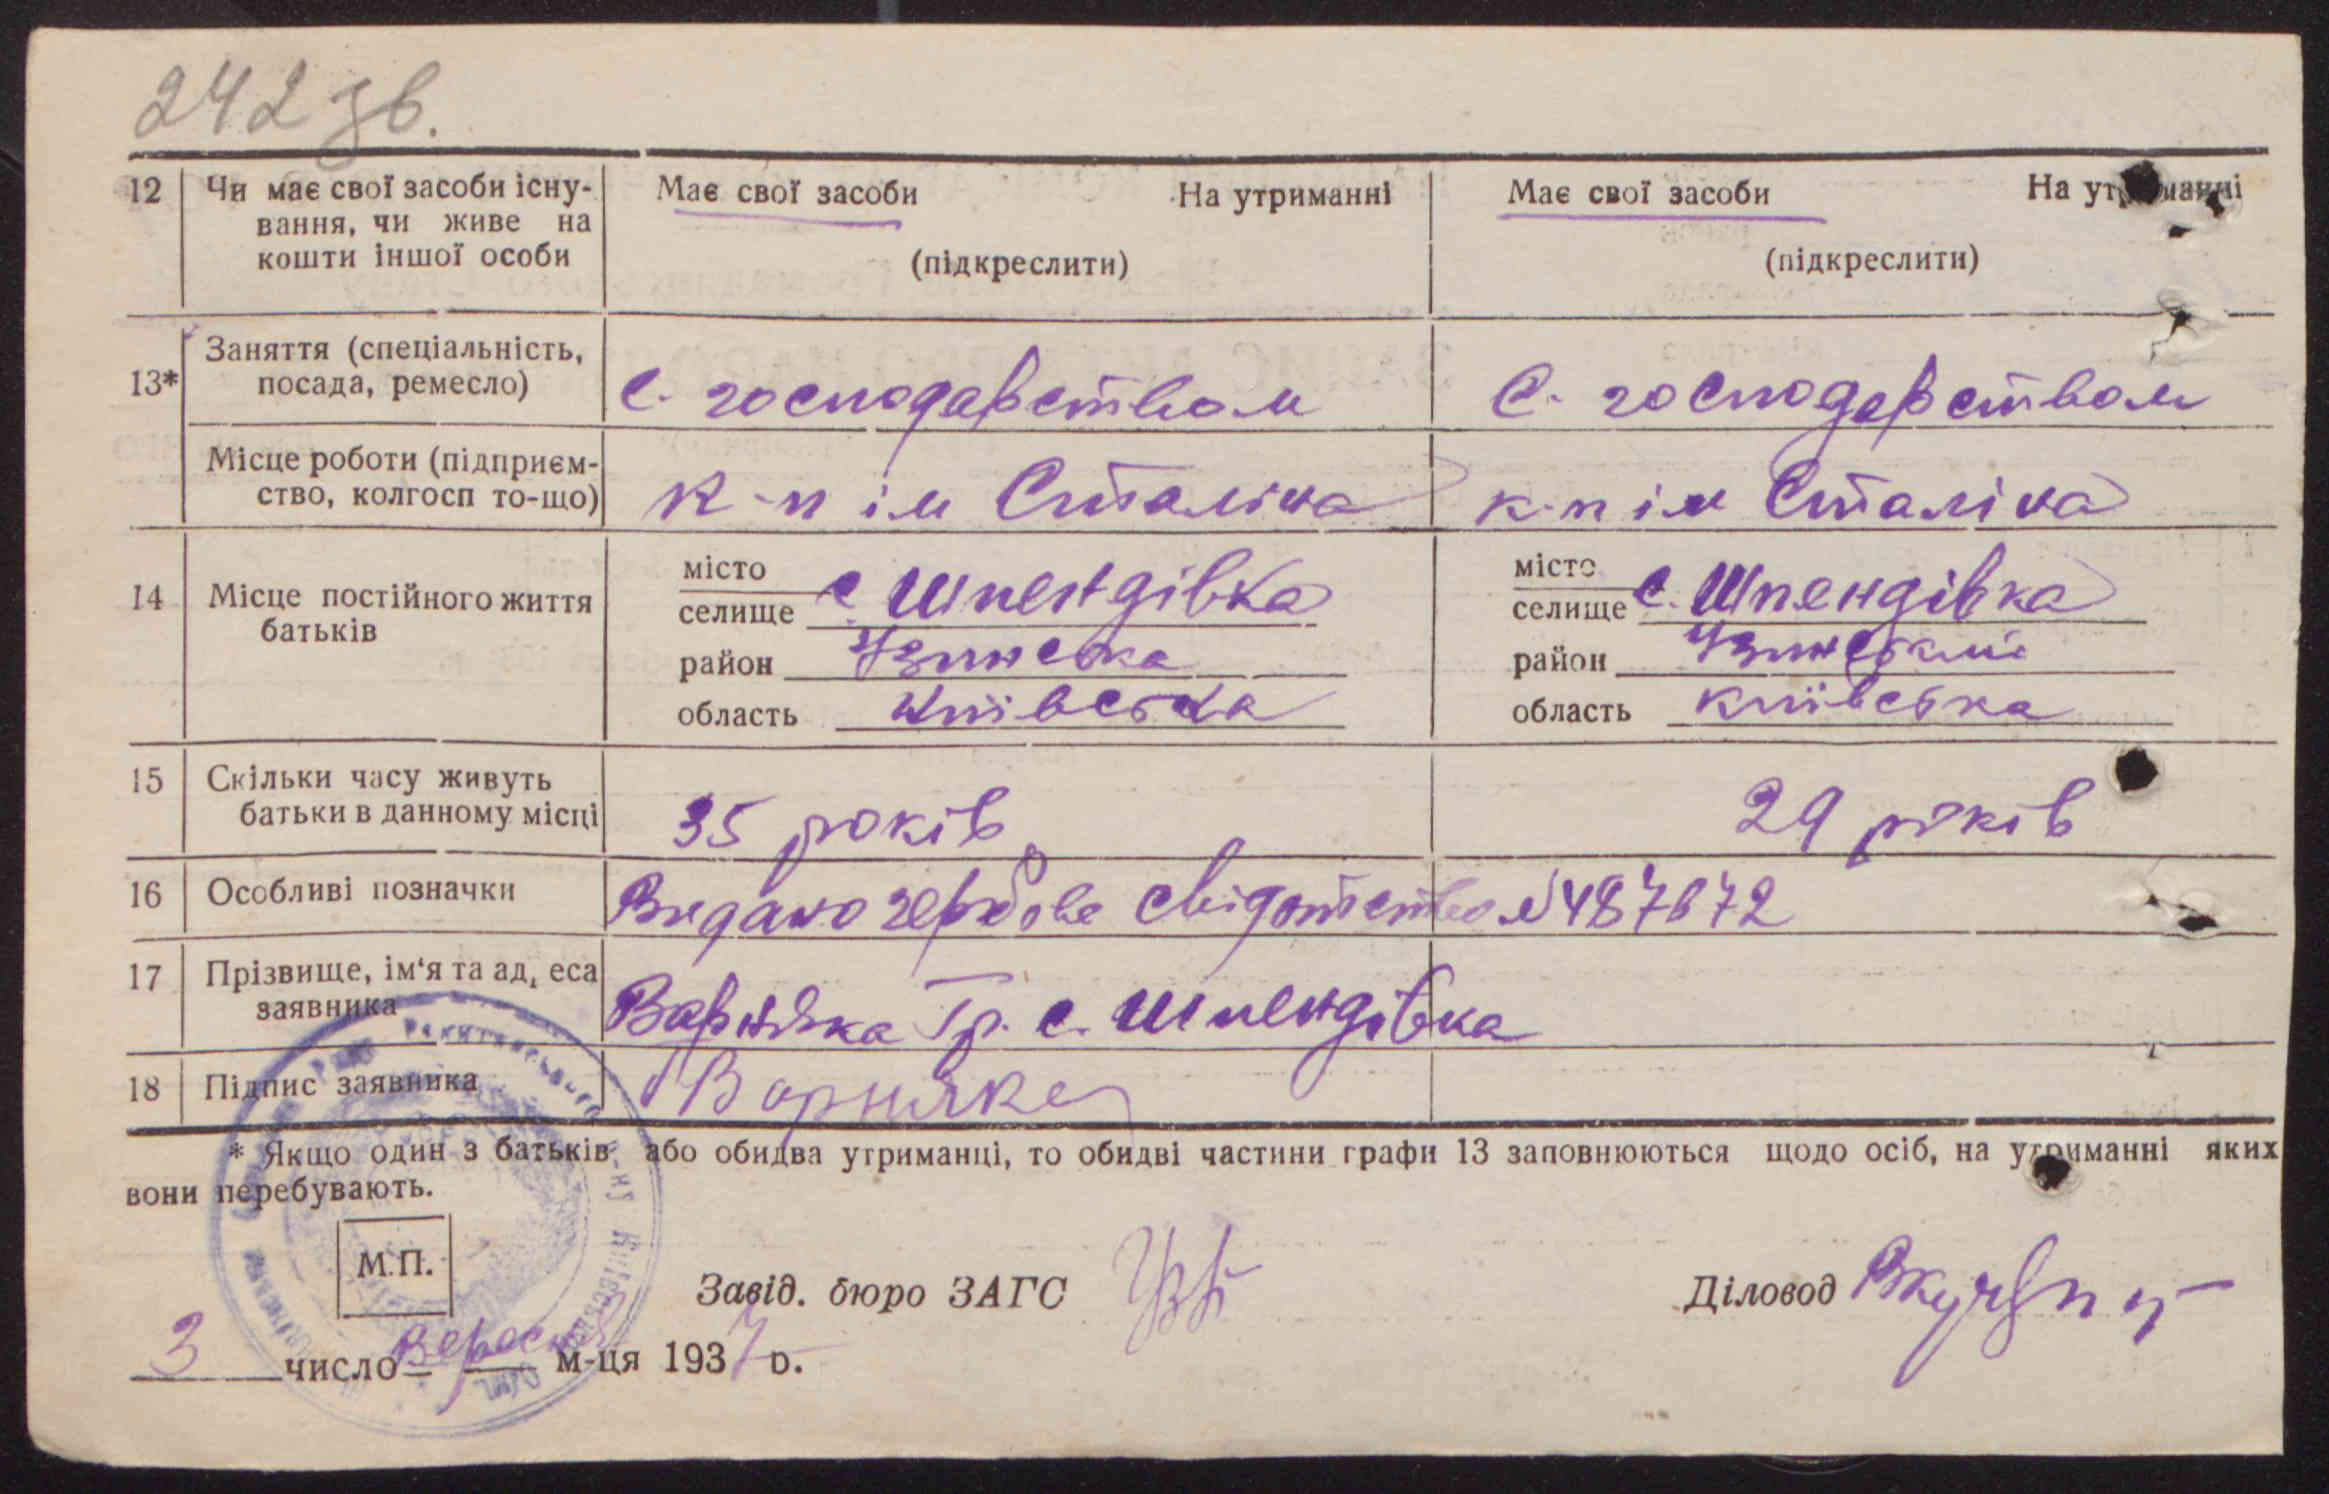 242 зв.
12 Чи має свої засоби існу- Має свої засоби На утриманні Має свої засоби На утриманні
вання, чи живе на
кошти іншої особи (підкреслити) (підкреслити)
Заняття (спеціальність,
13* посада, ремесло) С. господарством С. господарством
Місце роботи (підприєм-
ство, колгосп то-що) к-п ім Сталіна к-п ім Сталіна
місто місто
14 Місце постійного життя селище с. Шпендівка селище с. Шпендівка
батьків район Узинська район Узинський
область Київська область Київська
15 Скільки часу живуть
батьки в данному місці 35 років 29 років
16 Особливі позначки Видано гербове свідотство № 487672
17 Прізвище, ім'я та ад, еса
заявника Варняка Гр. с. Шпендівка
18 Підпис заявника Варняке
* Якщо один з батьків або обидва утриманці, то обидві частини графи 13 заповнюються щодо осіб, на утриманні яких
вони перебувають.
М.П.
Завід. бюро ЗАГС Діловод
3 число Вересня м-ця 1937 р.